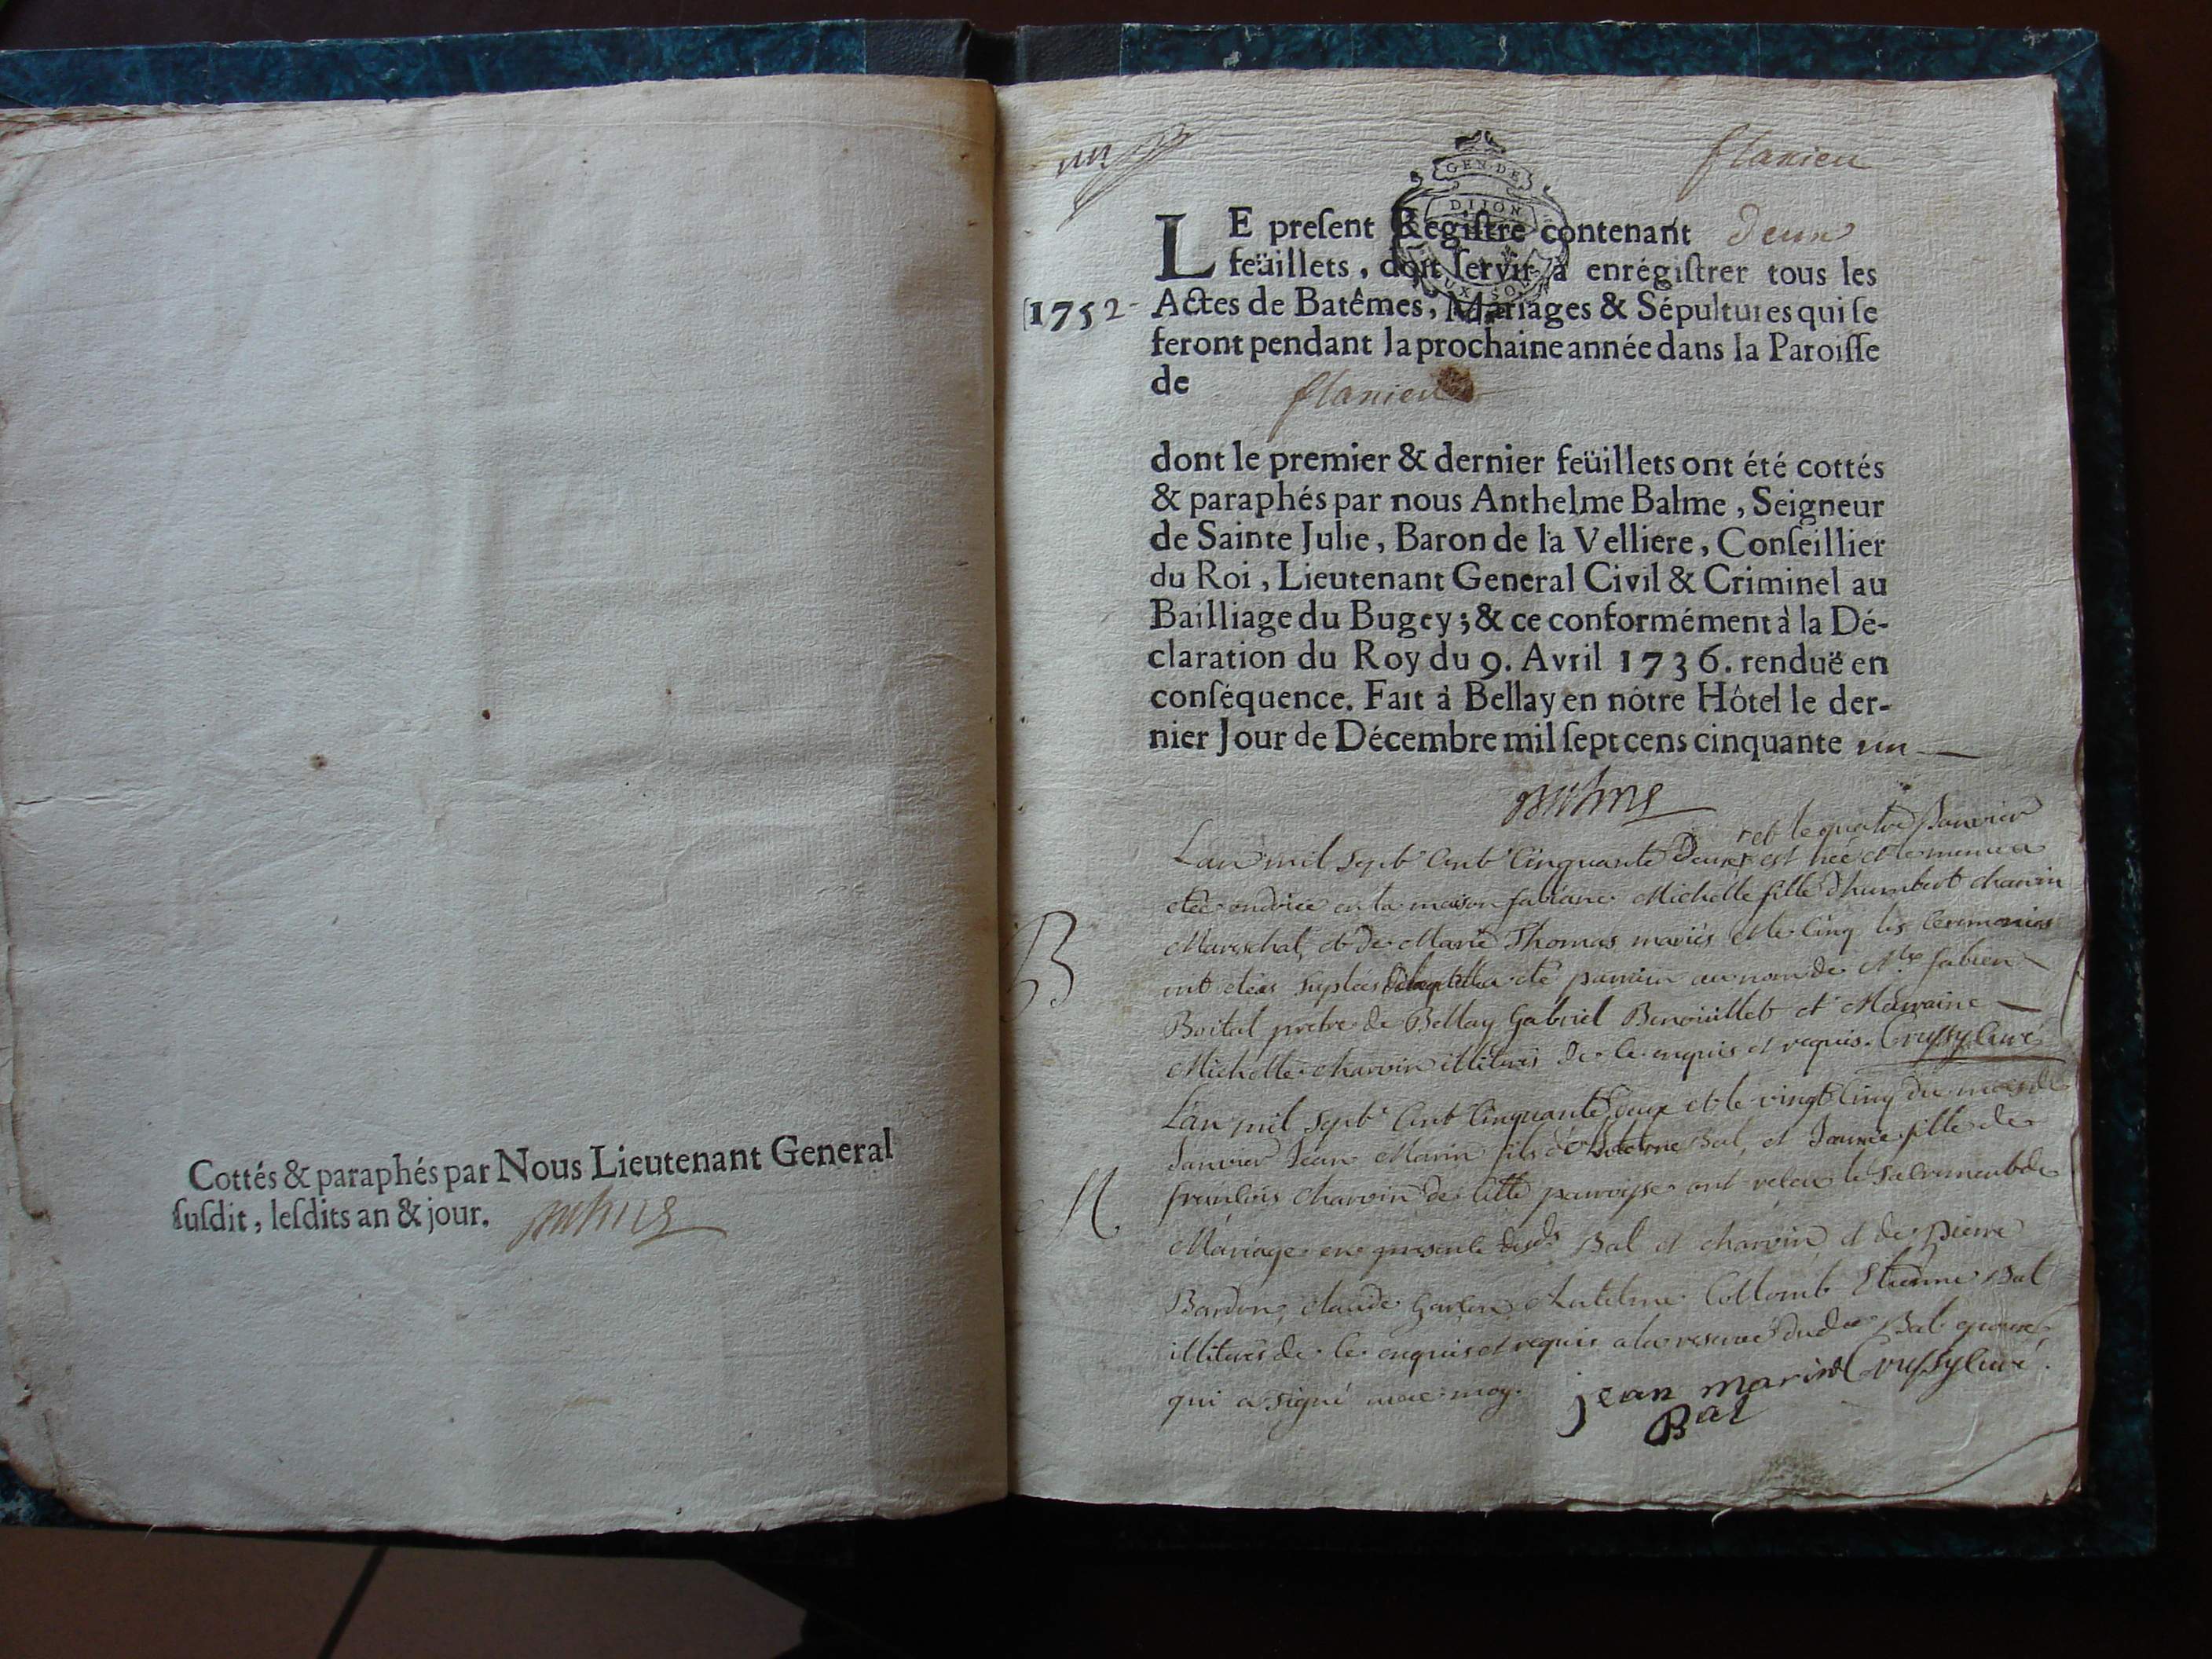 Cottés & paraphés par Nous Lieutenant General
ſuſdit, leſdits an & jour.
un
flaxieu
GEN·DE
DIJON
LE preſent Regiſtre contenant deux
feüillets, doit ſervir à enrégiſtrer tous les
1752 Actes de Batêmes, Mariages & Sépultures qui ſe
feront pendant la prochaine année dans la Paroiſſe
de flaxieu
dont le premier & dernier feüillets ont été cottés
& paraphés par nous Anthelme Balme, Seigneur
de Sainte Julie, Baron de la Velliere, Conſeillier
du Roi, Lieutenant General Civil & Criminel au
Bailliage du Bugey; & ce conformément à la Dé-
claration du Roy du 9. Avril 1736. renduë en
conſéquence. Fait à Bellay en nôtre Hôtel le der-
nier Jour de Décembre mil ſept cens cinquante un
et le quatre Janvier
Lan mil sept cent cinquante Deux est née et
etée ondoiee en la maison fabiane Michelle fille d'humbert charvin
Mareschal et de Marie Thomas mariés et le cinq les ceremonies
ont etées suplées a eté parrain au nom de fabien
Boital pretre de Bellay Gabriel Benoüillet et Marraine
B
Michelle charvin illiteres de ce enquis et requis. Crussy curé
Lan mil sept cent cinquante deux et le vingt cinq du mois de
Janvier Jean Marin fils d'Antelme Bal, et fille de
francois charvin de cette parroisse ont recu le Sacrement de
M
Mariage en presence desds Bal et charvin et de pierre
Bardon, claude Antelme Collomb Etienne Bal
illiteres de ce enquis et requis a la reserve dud Bal
qui a signé avec moy. jean marin Crussy curé.
Bal